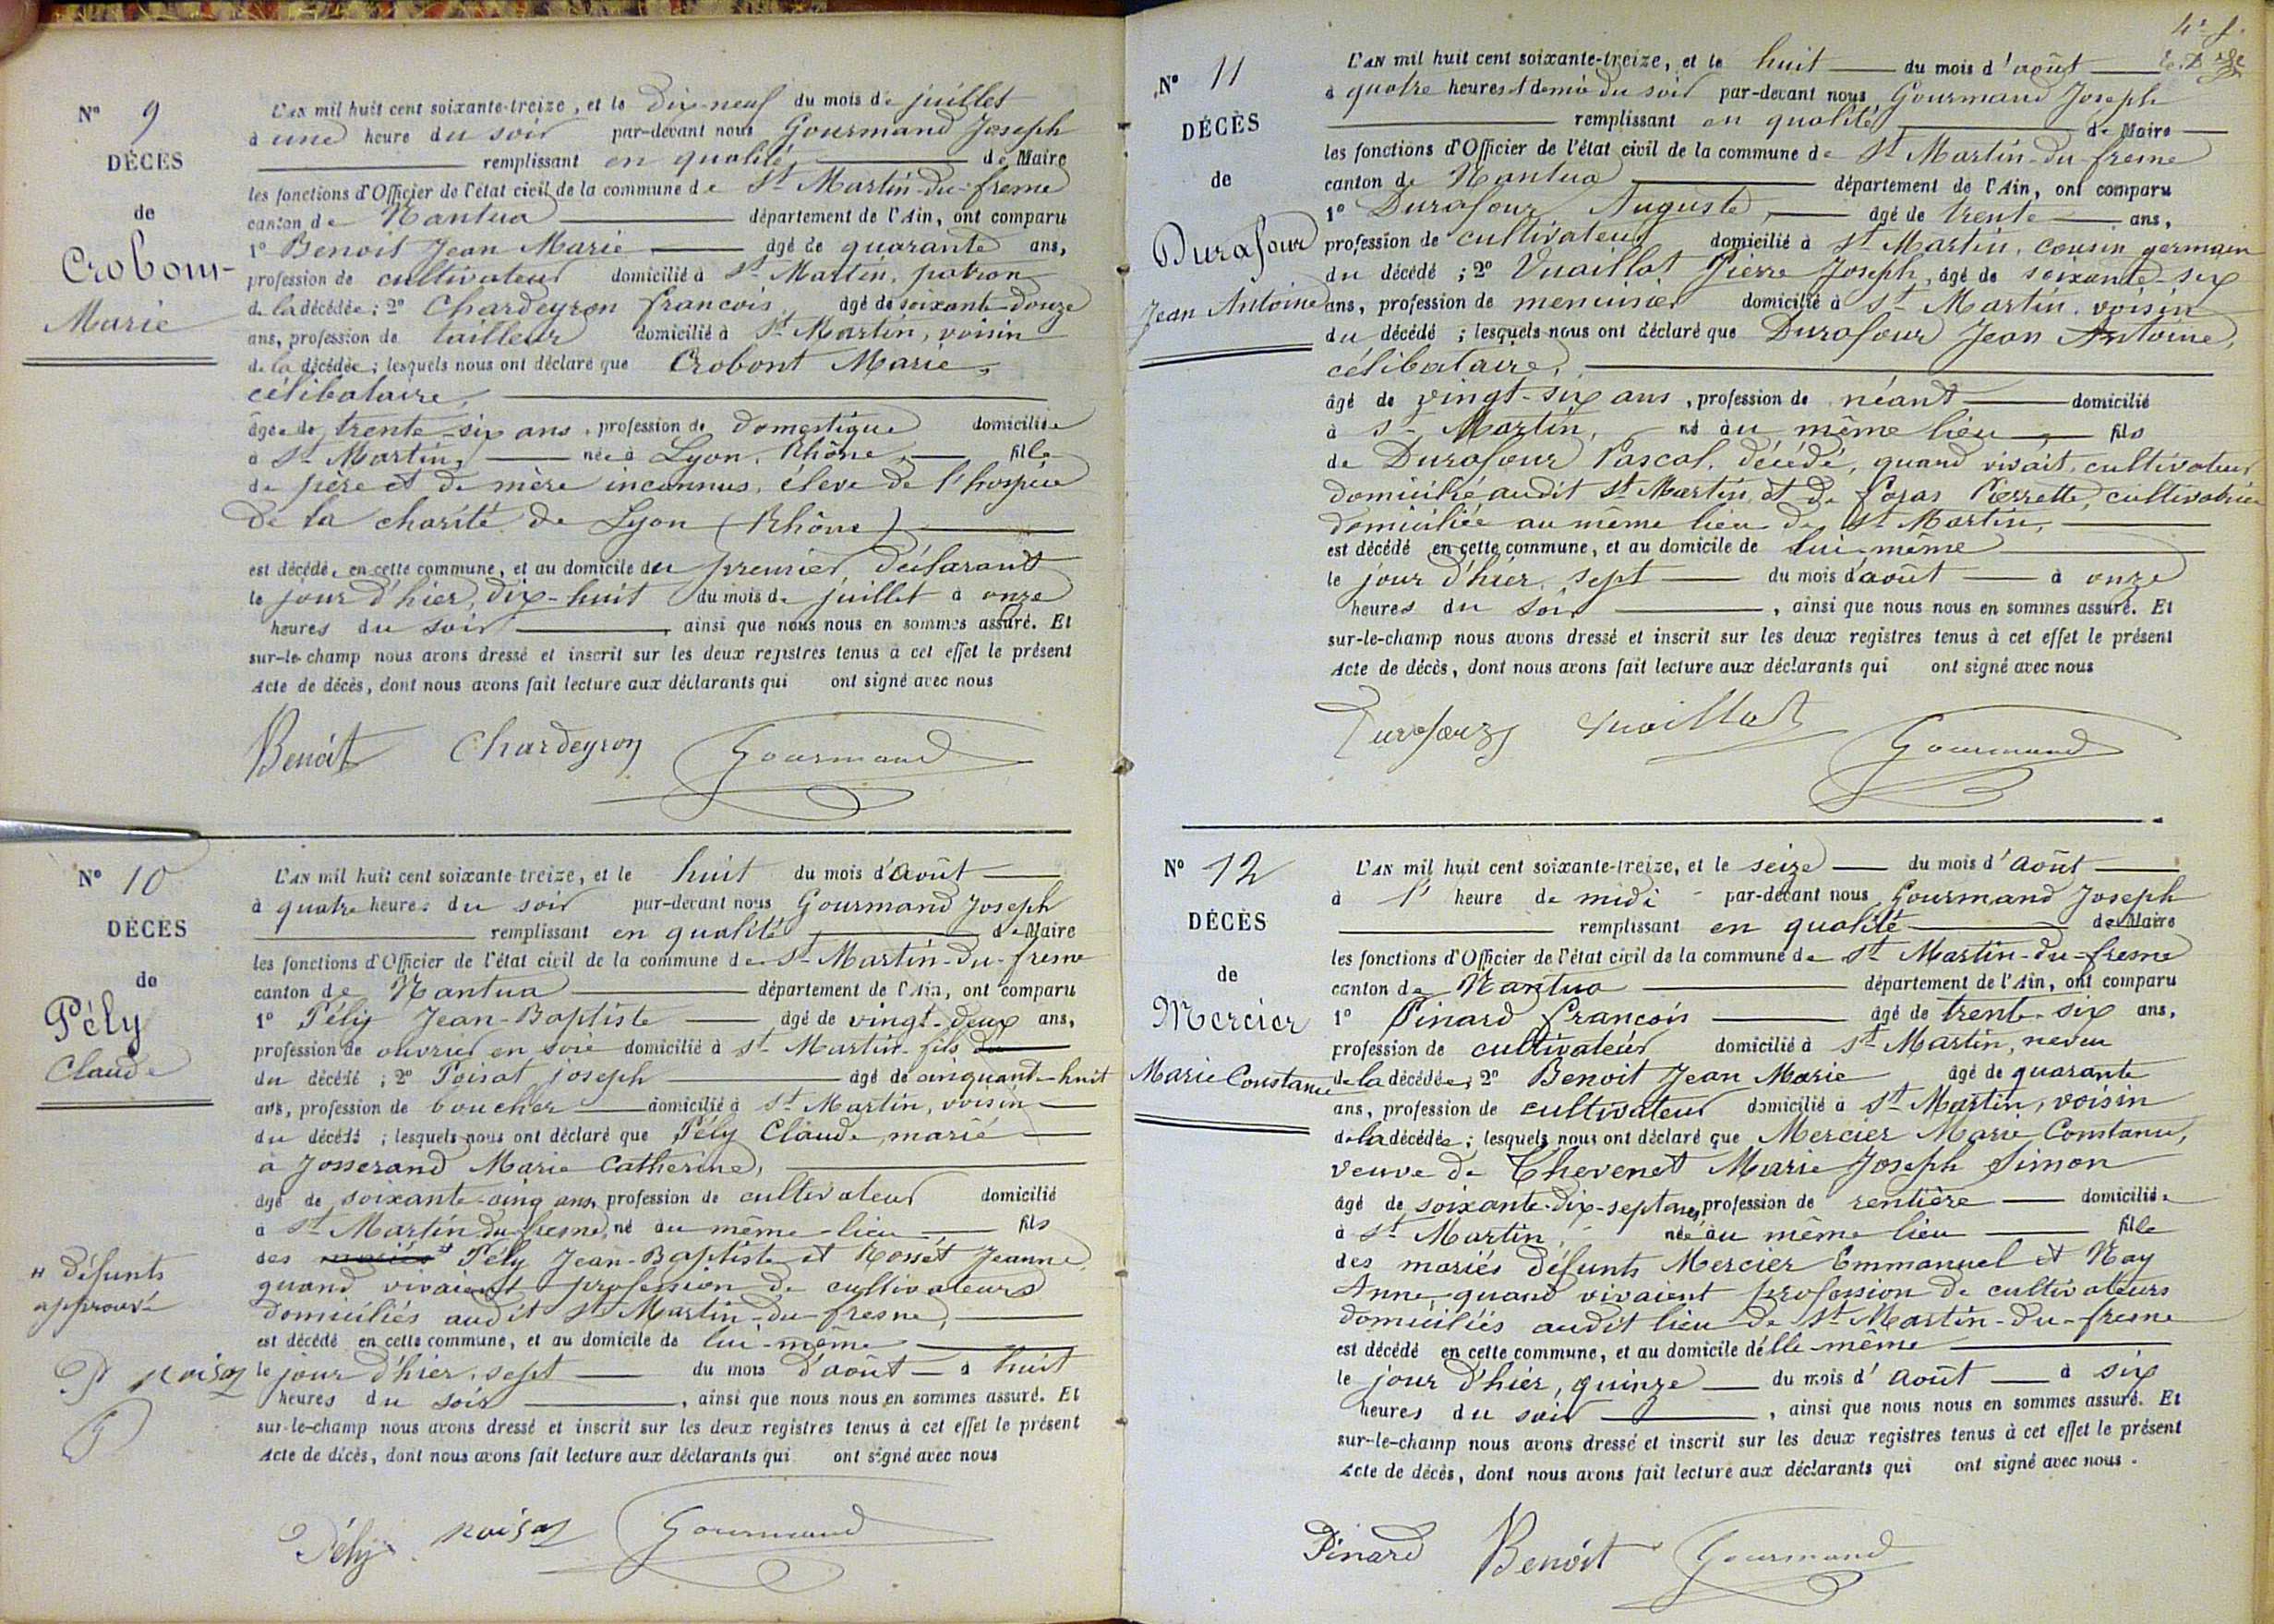 Nº 9
DÉCÈS
de
Crobont
Marie
L'AN mil huit cent soixante-treize, et le dix-neuf du mois de juillet
à une heure du soir par-devant nous Gourmand Joseph
remplissant en qualité de Maire
les fonctions d'Officier de l'état civil de la commune de St Martin-du-fresne
canton de Nantua département de l'Ain, ont comparu
1º Benoit Jean Marie âgé de quarante ans,
profession de cultivateur domicilié à St Martin, patron
de la décédée; 2º Chardeyron francois âgé de soixante-douze
ans, profession de tailleur domicilié à St Martin, voisin
de la décédée; lesquels nous ont déclaré que Crobont Marie,
célibataire,
âgée de trente-six ans, profession de domestique domiciliée
à St Martin, née à Lyon, Rhône, fille
de père et de mère inconnus, élève de l'hospice
de la charité de Lyon (Rhône)
est décédé, en cette commune, et au domicile du premier déclarant
le jour d'hier, dix-huit du mois de juillet à onze
heures du soir, ainsi que nous nous en sommes assuré. Et
sur-le-champ nous avons dressé et inscrit sur les deux registres tenus à cet effet le présent
Acte de décès, dont nous avons fait lecture aux déclarants qui ont signé avec nous
Benoit Chardeyron Gourmand
Nº 10
DÉCÈS
de
Pély
Claude
L'AN mil huit cent soixante-treize, et le huit du mois d'août
à quatre heures du soir par-devant nous Gourmand Joseph
remplissant en qualité de Maire
les fonctions d'Officier de l'état civil de la commune de St Martin-du-fresne
canton de Nantua département de l'Ain, ont comparu
1º Pély Jean-Baptiste âgé de vingt-deux ans,
profession de ouvrier en soie domicilié à St Martin fils du
du décédé; 2º Poisat joseph âgé de cinquante-huit
ans, profession de boucher domicilié à St Martin, voisin
du décédé; lesquels nous ont déclaré que Pély Claude, marié
à Josserand Marie Catherine,
âgé de soixante-cinq ans, profession de cultivateur domicilié
à St Martin du-fresne, né au même lieu fils
des mariés Pély Jean-Baptiste et Rosset Jeanne,
quand vivaient profession de cultivateurs
domiciliés audit St Martin-du-fresne,
est décédé en cette commune, et au domicile de lui-même
le jour d'hier, sept du mois d'août à huit
heures du soir, ainsi que nous nous en sommes assuré. Et
sur-le-champ nous avons dressé et inscrit sur les deux registres tenus à cet effet le présent
Acte de décès, dont nous avons fait lecture aux déclarants qui ont signé avec nous
" défunts
approuvé
P poisat
G
Pély poisat Gourmand
4e f.
Nº 11
DÉCÈS
de
Durafour
Jean Antoine
L'AN mil huit cent soixante-treize, et le huit du mois d'août
à quatre heures et demie du soir par-devant nous Gourmand Joseph
remplissant en qualité de Maire
les fonctions d'Officier de l'état civil de la commune de St Martin-du-fresne
canton de Nantua département de l'Ain, ont comparu
1º Durafour Auguste, âgé de trente ans,
profession de cultivateur domicilié à St Martin, cousin germain
du décédé; 2º Vuaillat Pierre Joseph, âgé de soixante-six
ans, profession de menuisier domicilié à St Martin, voisin
du décédé; lesquels nous ont déclaré que Durafour Jean Antoine,
célibataire,
âgé de vingt-six ans, profession de néant domicilié
à St Martin, né au même lieu, fils
de Durafour Pascal, décédé, quand vivait, cultivateur
domicilié audit St Martin, et de Pierrette, cultivatrice
domiciliée au même lieu de St Martin,
est décédé en cette commune, et au domicile de lui-même
le jour d'hier, sept du mois d'août à onze
heures du soir, ainsi que nous nous en sommes assuré. Et
sur-le-champ nous avons dressé et inscrit sur les deux registres tenus à cet effet le présent
Acte de décès, dont nous avons fait lecture aux déclarants qui ont signé avec nous
Durafour Vuaillat Gourmand
Nº 12
DÉCÈS
de
Mercier
Marie Constance
L'AN mil huit cent soixante-treize, et le seize du mois d'août
à l' heure de midi par-devant nous Gourmand Joseph
remplissant en qualité de Maire
les fonctions d'Officier de l'état civil de la commune de St Martin-du-fresne
canton de Nantua département de l'Ain, ont comparu
1º Pinard françois âgé de trente-six ans,
profession de cultivateur domicilié à St Martin, neveu
de la décédée; 2º Benoit Jean Marie âgé de quarante
ans, profession de cultivateur domicilié à St Martin, voisin
de la décédée; lesquels nous ont déclaré que Mercier Marie Constance,
veuve de Thevenet Marie Joseph Simon
âgé de soixante-dix-sept ans, profession de rentière domiciliée
à St Martin, née au même lieu fille
des mariés défunts Mercier Emmanuel et Nay
Anne, quand vivaient profession de cultivateurs
domiciliés audit lieu de St Martin-du-fresne
est décédé en cette commune, et au domicile d'elle-même
le jour d'hier, quinze du mois d'août à six
heures du soir, ainsi que nous nous en sommes assuré. Et
sur-le-champ nous avons dressé et inscrit sur les deux registres tenus à cet effet le présent
Acte de décès, dont nous avons fait lecture aux déclarants qui ont signé avec nous.
Pinard Benoit Gourmand